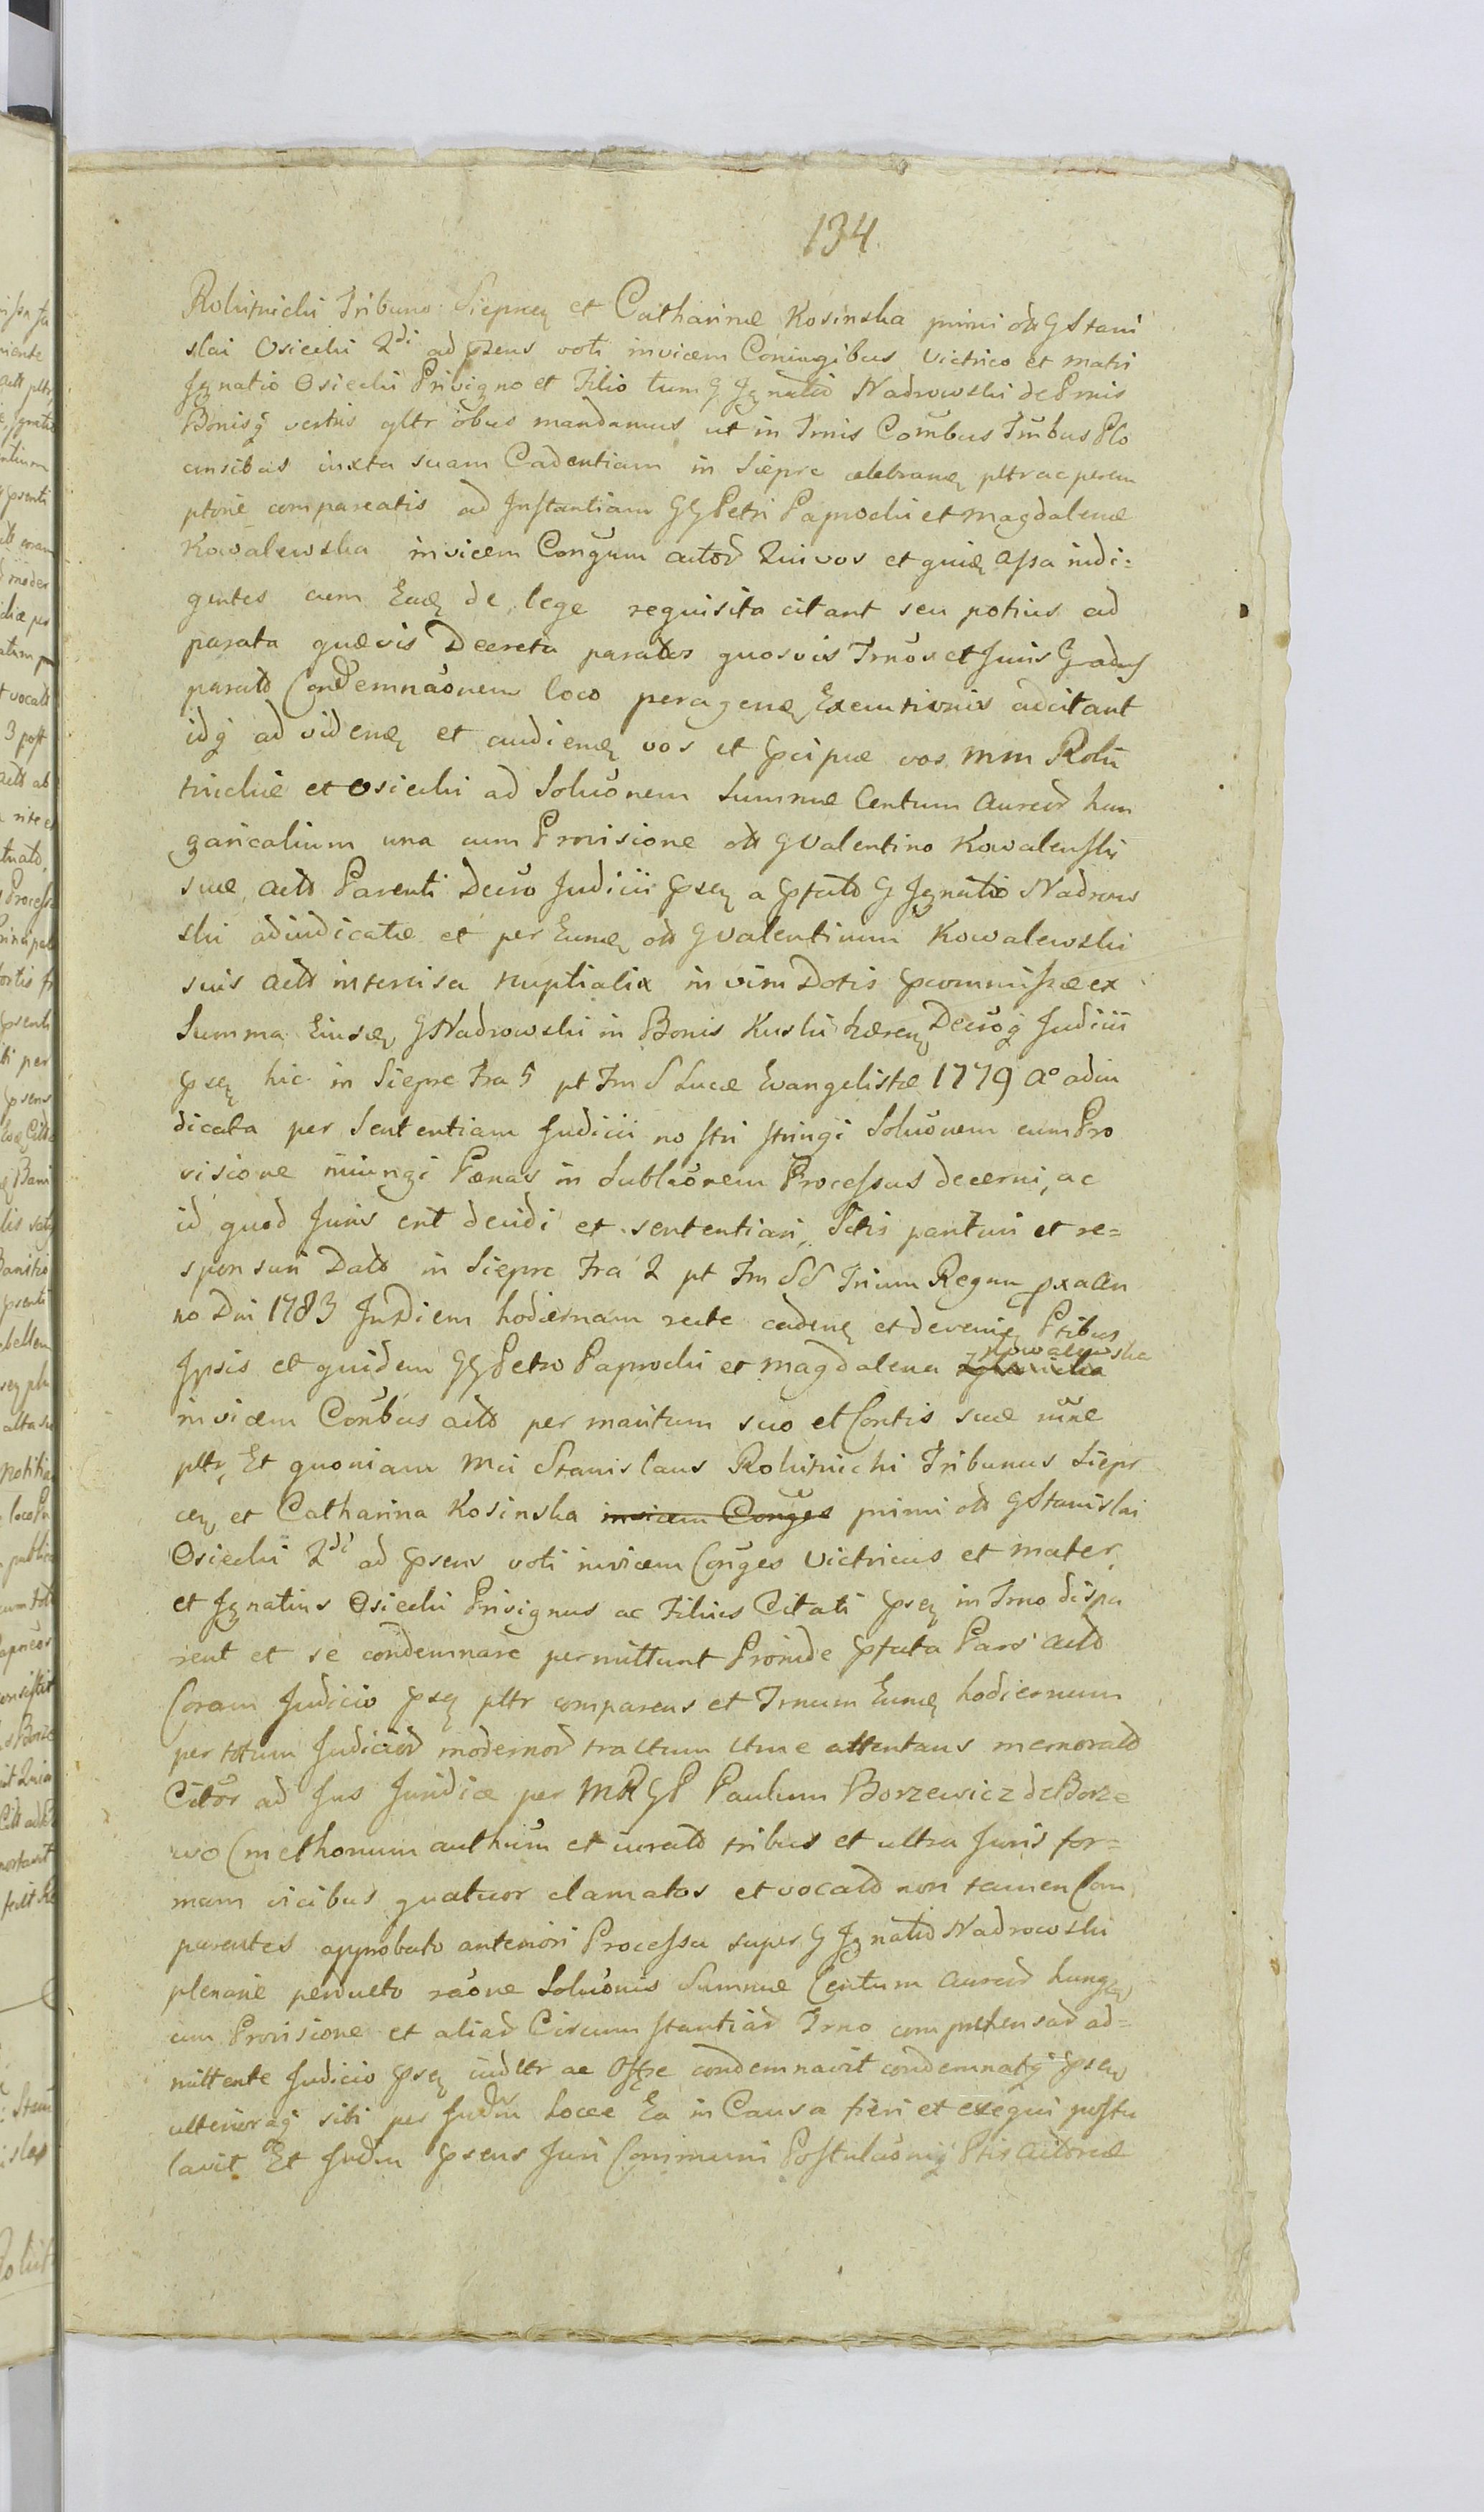 134
Rokitnicki Tribuno Sieprcen et Catharinæ Kosinska primi olt G Stani
slai Osiecki 2di ad psens voti invicem Coniugibus Victrico et Matri
Ignatio Osiecki Privigno et Filio tum G Ignatio Nadrowski de Prnis
Bonisq vestris gltr õbus mandamus ut in Trnis Combus Trubus Plo
censibus iuxta suam Cadentiam in Sieprc celebrane pltr ac perem
ptorie compareatis ad Instantiam GG Petri Paprocki et Magdalenæ
Kowalewska invicem Congum actor Qui vos et quie assa indi:
gentes cum Eade de lege requisita citant seu potius ad
parata quævis Decreta parator quosvis Trnos et Juris Gradus
parato Condemnaonem loco peragene Executionis adcitant
idq ad videne et audiene vos et pcipue vos MM Roki
tnickie et Osiecki ad Soluonem Summæ Centum Aureor hun
garicalium una cum Provisione olt G Valentino Kowalewski
suæ acto Parenti Decro Judicii psen a pfato G Ignatio Nadrow
ski adiudicatæ et per Eume olt G Valentinum Kowalewski
suis acto intercisa nuptialix in vim Dotis pcommissæ ex
Summa Eiusde G Nadrowski in Bonis Kuski hæren Decroq Judicii
psen hic in Sieprc Fra 5 pt Fm S Lucæ Evangelistæ 1779 Ao adiu
dicata per Sententiam Judicii nostri stringi Soluonem cum Pro
visione iniungi Pænas in Subluonem Processus decerni, ac
id quod Juris erit decidi et sententiari, Sitis parituri et re=
sponsuri Dato in Sieprc Fra 2 pt Fm SS Trium Regum pxa An
no Dni 1783 In Diem hodiernam recte cadene et devenie Ptibus
Ipsis et quidem GG Petro Paprocki et Magdalena Kowalewska
invicem Conbus acto per maritum suo et Consortis suæ nõie
pltr, Et quoniam Mci Stanislaus Rokitnicki Tribunus Siepr
cen et Catharina Kosinska invicem Conges primi olt G Stanislai
Osiecki 2di ad psens voti invicem Conges Victricus et Mater
et Ignatius Osiecki Privignus ac Filius Citati psen in Trno dispa
rent et se condemnare permittunt Proinde pfata Pars acto
Coram Judicio psen pltr comparens et Trnum Eume hodiernum
per totum Judicior modernor tractum Ultme attentans memorato
Citos ad Jus Juridice per MRGP Paulum Borzewicz de Borze
wo Cmethonum authum et iurato tribus et ultra Juris for=
mam vicibus quatuor clamatos et vocato non tamen Com
parentes approbato anteriori Processu super G Ignatio Nadrowski
plenarie perducto raõne Soluonis Summæ Centum Aureor hungen
cum Provisione et aliar Circumstantiar Trno comprehensar ad=
mittente Judicio psen iudltr ac Osse condemnavit condemnatq psen
ulteriorq sibi per Judm hocce Ea in Causa fieri et exequi postu
lavit Et Judm psens Juri Communi Postulaonisq Ptis Actoreæ